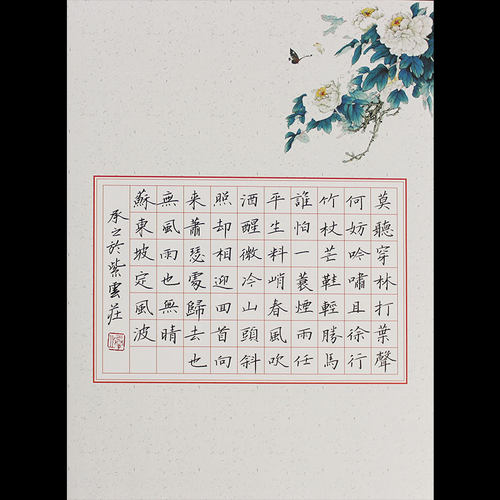 莫聽穿林打葉聲
何妨吟嘯且徐行
竹杖芒鞋輕勝馬
誰怕一蓑煙雨任
平生料峭春風吹
酒醒微冷山頭斜
照却相迎回首向
来蕭瑟處歸去也
無風雨也無晴
蘇東坡定風波
承之於紫雲莊